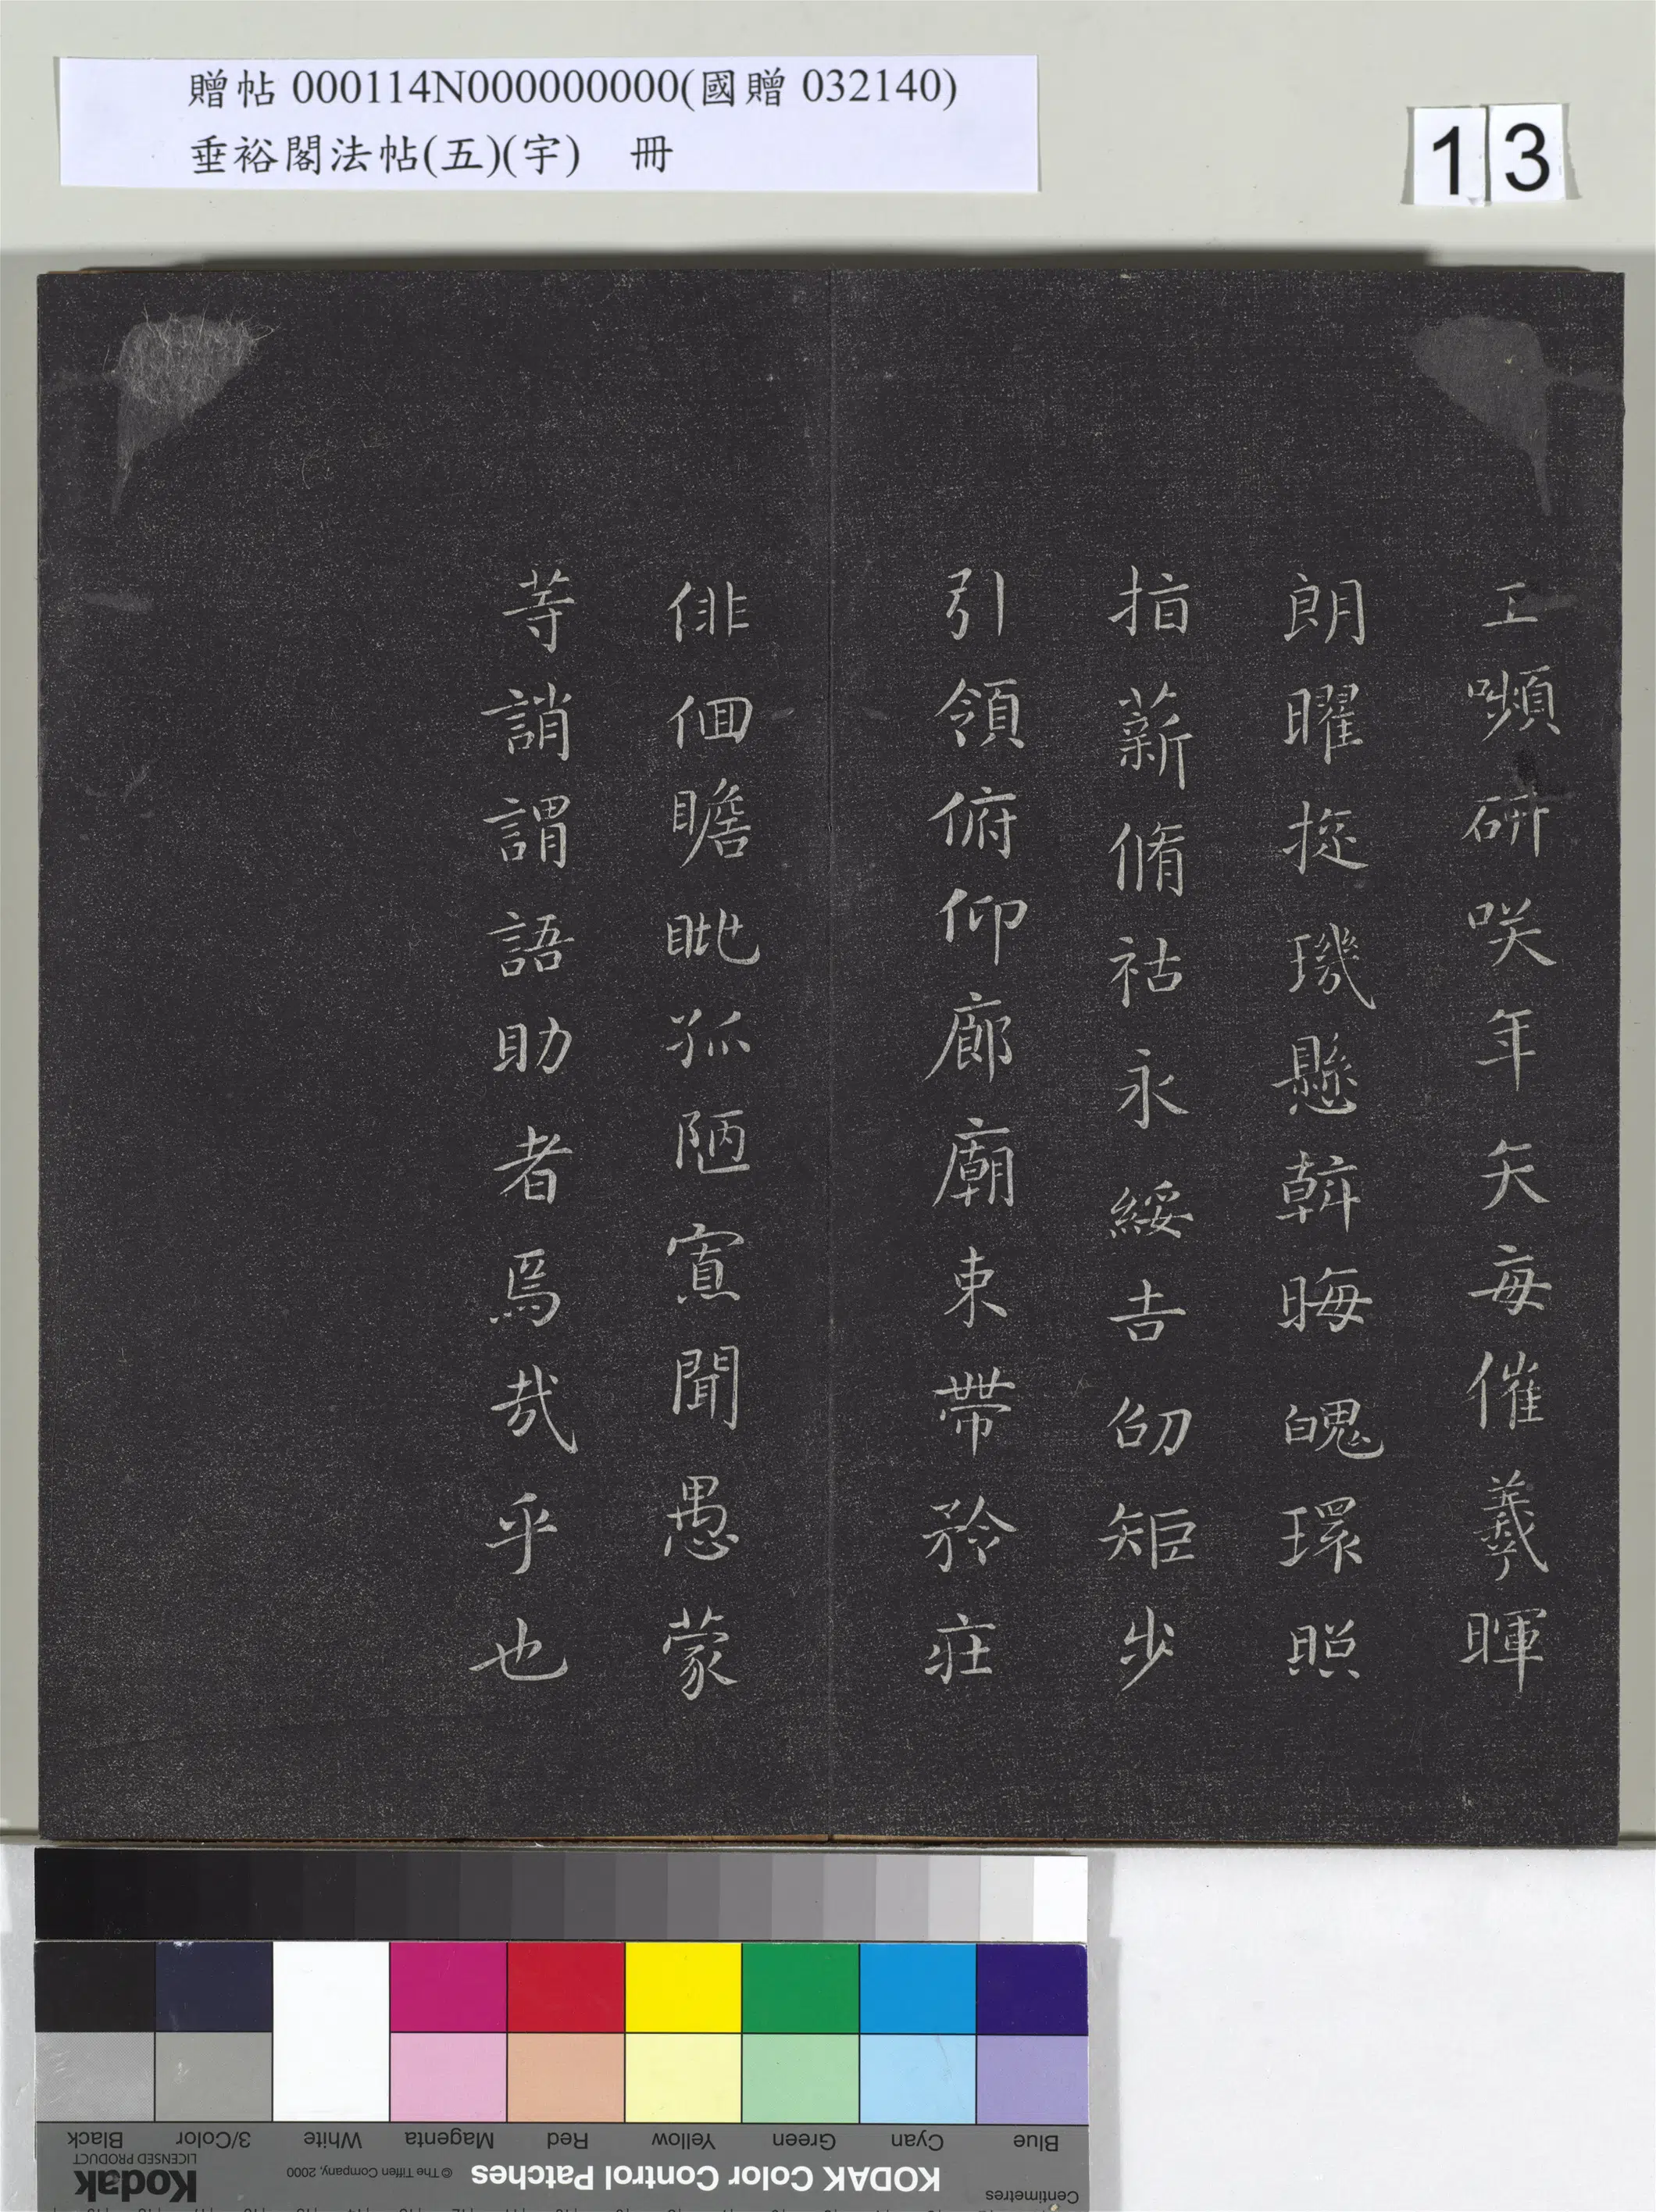 贈帖 000114N000000000(國贈 032140)
垂裕閣法帖(五)(宇) 冊
13
工嚬研咲年矢每催羲暉
朗曜琁璣懸斡晦魄環照
指薪脩祜永綏吉劭矩步
引領俯仰廊廟束帶矜莊
俳佪瞻眺孤陋寡聞愚蒙
等誚謂語助者焉哉乎也
Blue Cyan Green Yellow Red Magenta White 3/Color Black
Centimetres KODAK Color Control Patches © The Tiffen Company, 2000 Kodak
LICENSED PRODUCT